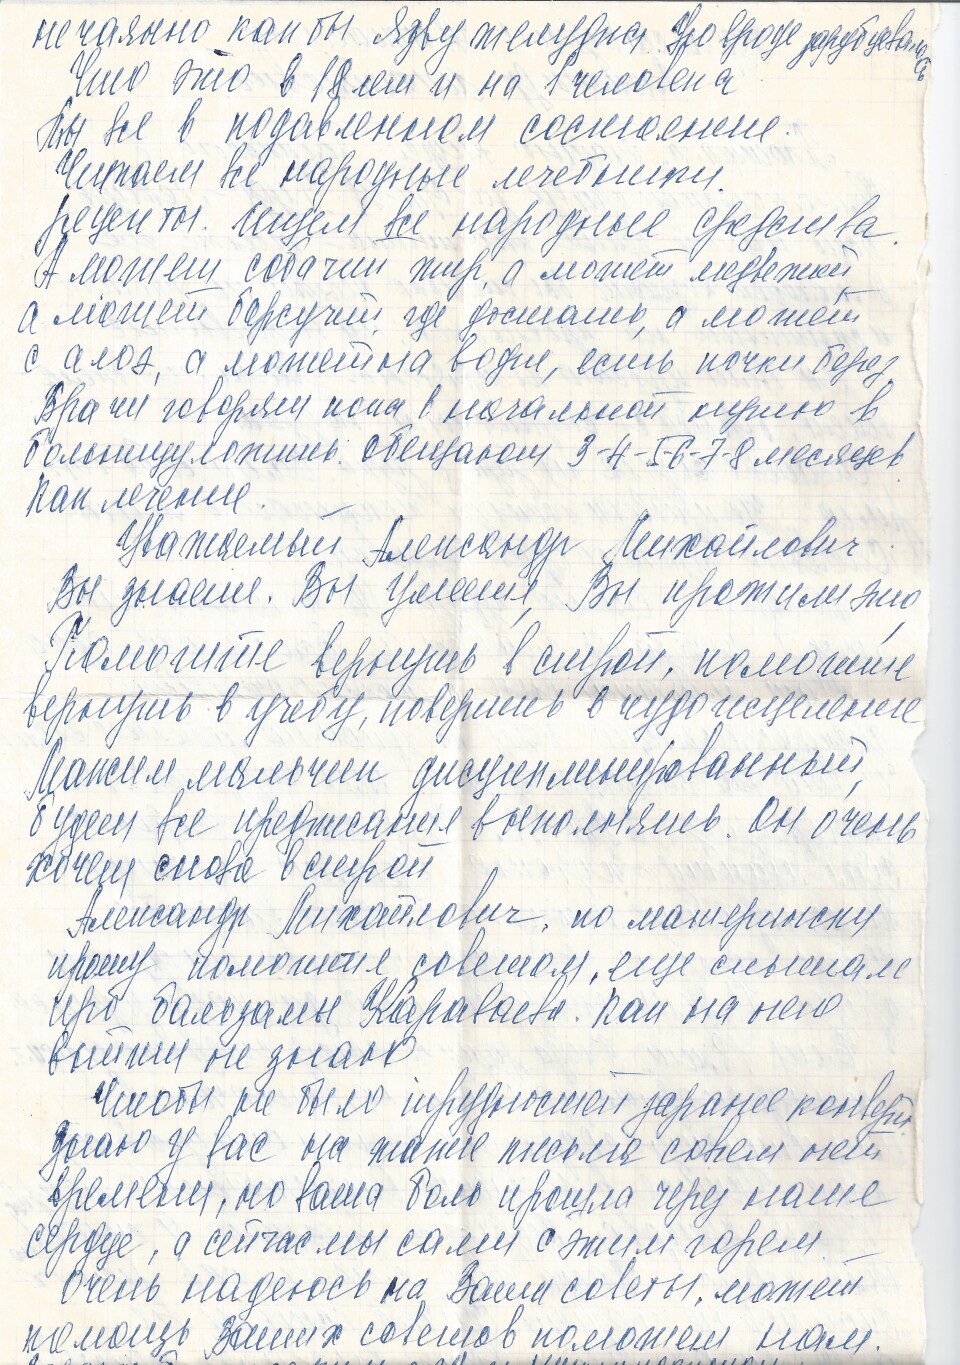 нечаянно как бы язву желудка Что вроде зарубцевалась
Что это в 18 лет и на 1 человека
Мы все в подавленном состояние.
Читаем все народные лечебники.
рецепты. Ищем все народные средства.
А может собачий жир, а может медвежий,
а может барсучий, где достать, а может
с алоэ, а может на водке, есть почки берез
Врачи говорят пока в начальной в
больницу ложить. обещают 3-4-5-6-7-8 месяцев.
как лечение.
Уважаемый Александр Михайлович
Вы знаете. Вы умеете, Вы прожили это,
Помогите вернуть в строй, помогите
вернуть в учебу, поверить в чудо исцеление
Максим мальчик дисциплинированный,
будет все предписания выполнять. Он очень
хочет снова в строй
Александр Михайлович, по матерински
прошу помогите советом, еще слышали
про бальзамы Караваева. Как на него
выйти не знаю
Чтобы не было трудностей заранее конверт.
знаю у вас на такие письма совсем нет
времени, но ваша боль прошла через наше
сердце, а сейчас мы сами с этим горем
Очень надеюсь на Ваши советы, может
помощь Ваших советов поможет нам.